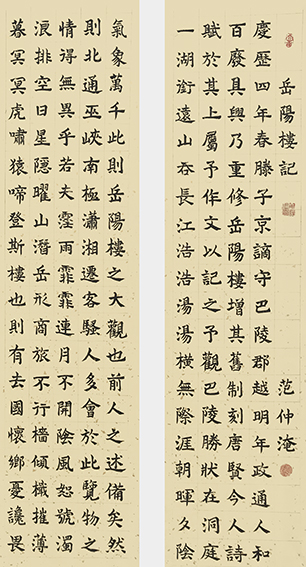 岳陽樓記 范仲淹
慶歷四年春滕子京謫守巴陵郡越明年政通人和
百廢具興乃重修岳陽樓增其舊制刻唐賢今人詩
賦於其上屬予作文以記之予觀巴陵勝狀在洞庭
一湖銜遠山吞長江浩浩湯湯橫無際涯朝暉夕陰
氣象萬千此則岳陽樓之大觀也前人之述備矣然
則北通巫峽南極瀟湘遷客騷人多會於此覽物之
情得無異乎若夫霪雨霏霏連月不開陰風怒號濁
浪排空日星隱曜山潛岳形商旅不行檣傾檝摧薄
暮冥冥虎嘯猿啼登斯樓也則有去國懷鄉憂讒畏